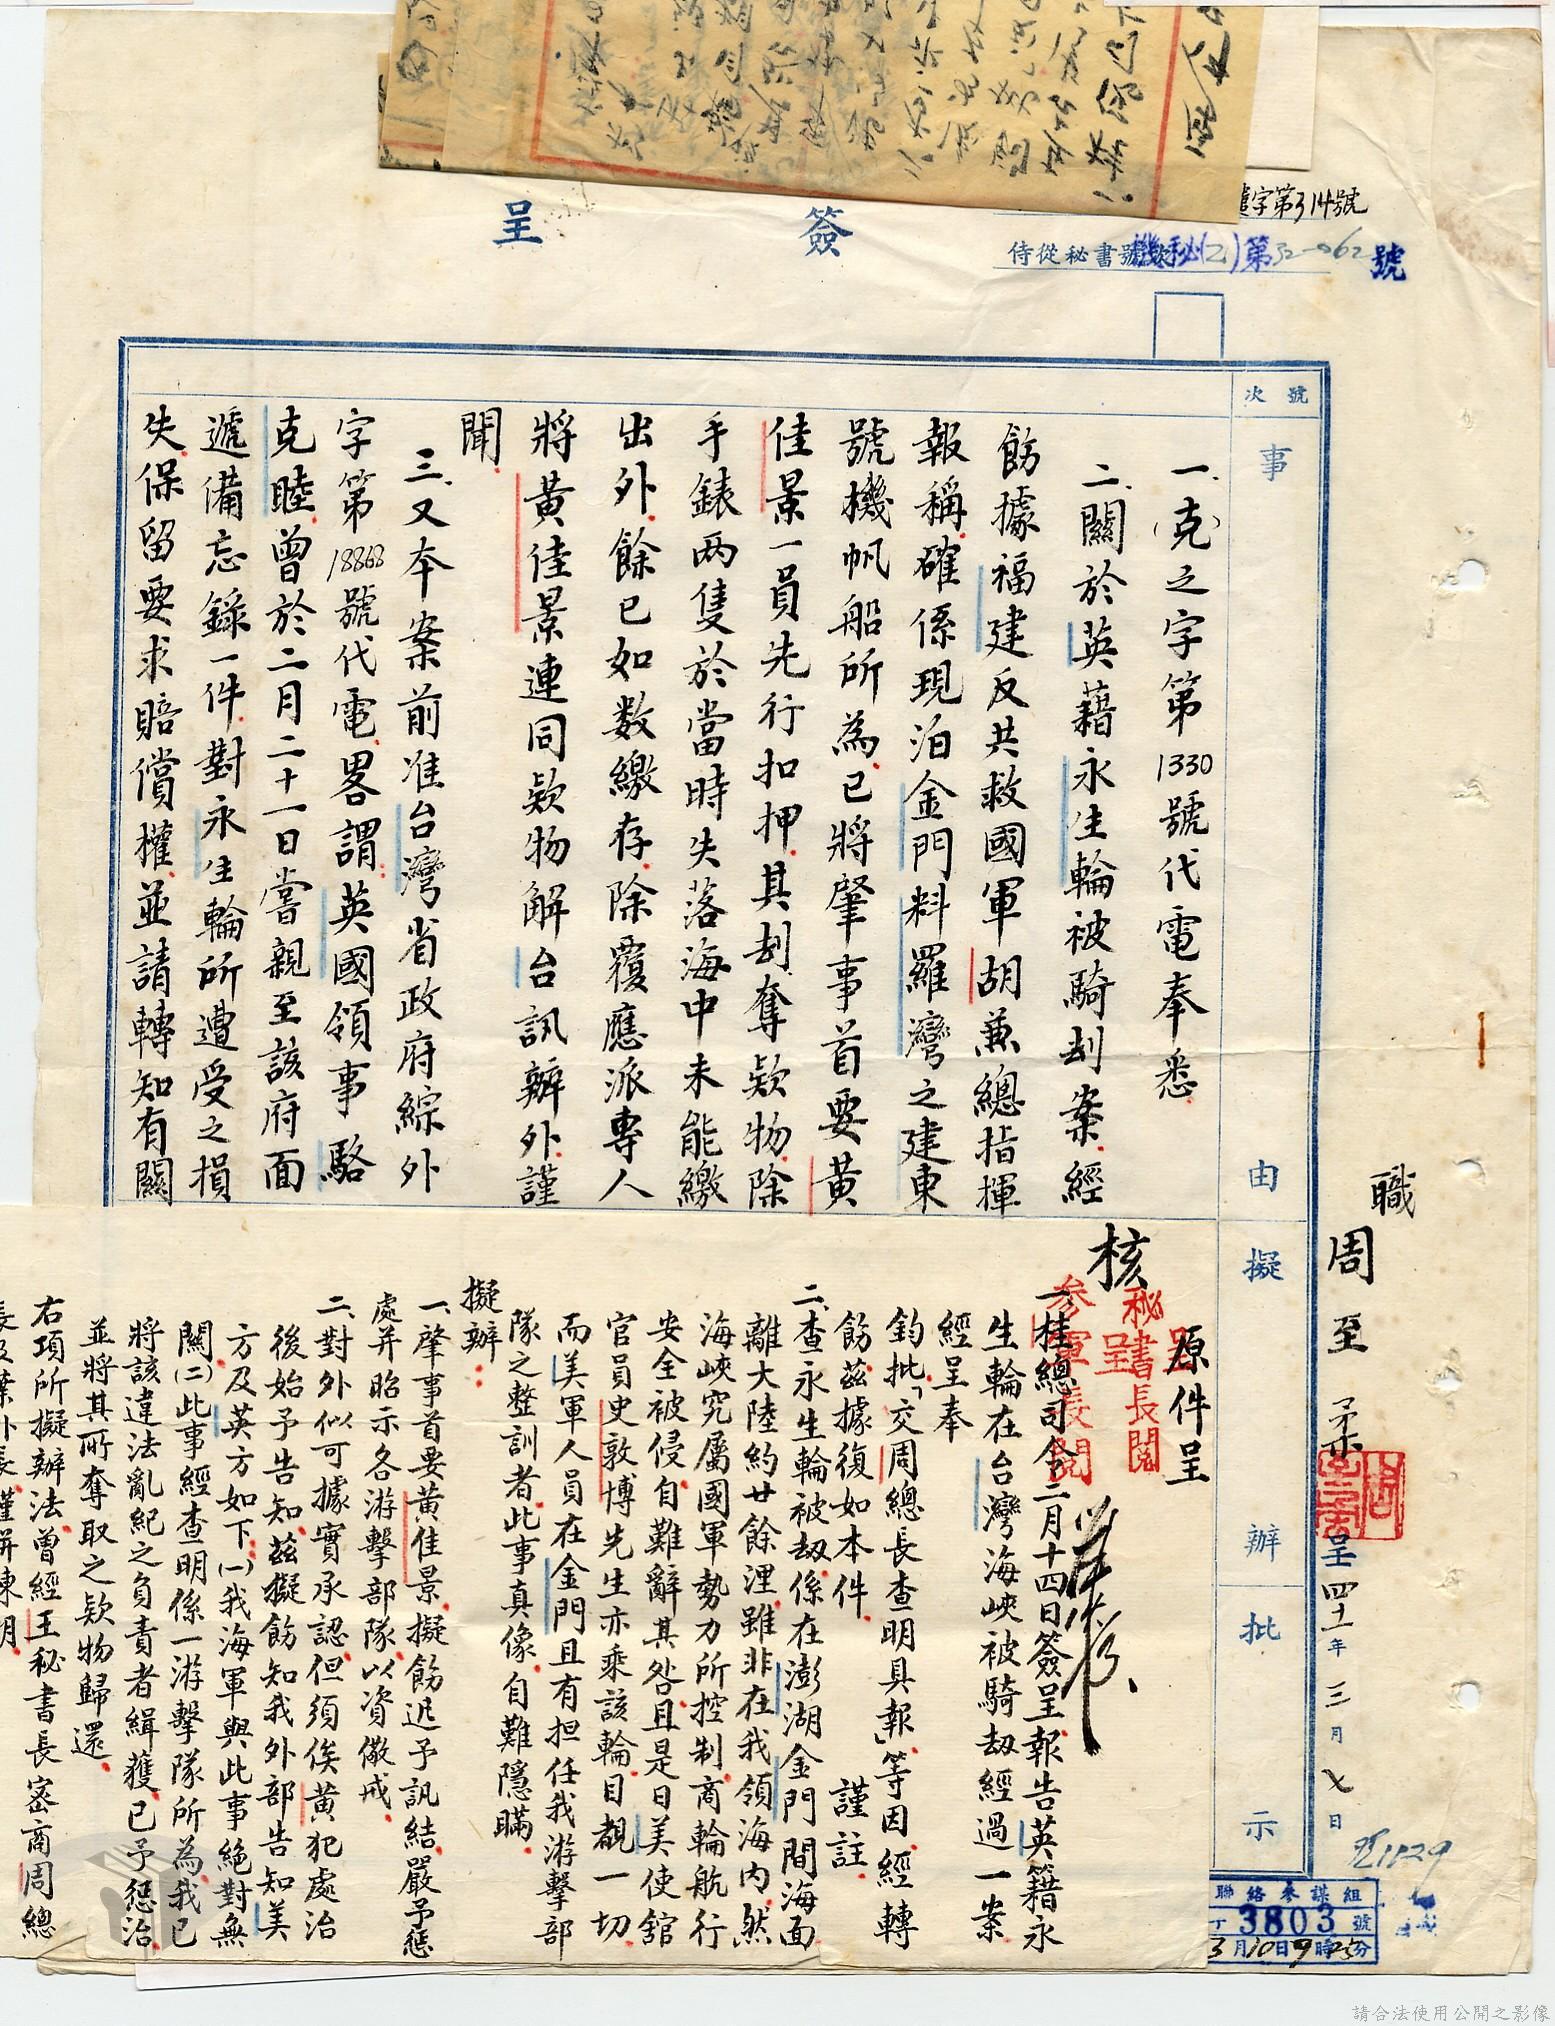 簽呈
遣字第314號
侍從秘書號次
機秘(乙)第52-062號
號次
事由
擬辦
批示
一、(克)之字第1330號代電奉悉
二、關於英籍永生輪被騎刦案經
飭據福建反共救國軍胡兼總指揮
報稱確係現泊金門料羅灣之建東
號機帆船所為已將肇事首要黃
佳景一員先行扣押其刦奪欵物除
手錶两隻於當時失落海中未能繳
出外餘已如数繳存除覆應派專人
將黃佳景連同欵物解台訊辦外謹
聞
三、又本案前准台灣省政府綜外
字第18868號代電畧謂英國領事駱
克睦曾於二月二十一日嘗親至該府面
遞備忘錄一件對永生輪所遭受之損
失保留要求賠償權並請轉知有關
職 周至柔 呈四十一年三月七日
原件呈
核
呈秘書長閱
呈參軍長閱
一、桂總司令二月十四日簽呈報告英籍永
生輪在台灣海峽被騎刼經過一案
經呈奉
鈞批「交周總長查明具報」等因經轉
飭茲據復如本件 謹註
二、查永生輪被刼係在澎湖金門間海面
離大陸約廿餘浬雖非在我領海內然
海峽究屬國軍勢力所控制商輪航行
安全被侵自難辭其咎且是日美使舘
官員史敦博先生亦乘該輪目覩一切
而美軍人員在金門且有担任我游擊部
隊之整訓者此事真像自難隱瞞
擬辦：
一、肇事首要黃佳景擬飭迅予訊結嚴予懲
處并昭示各游擊部隊以資儆戒
二、對外似可據實承認但須俟黃犯處治
後始予告知茲擬飭知我外部告知美
方及英方如下：(一)我海軍與此事絕對無
關(二)此事經查明係一游擊隊所為我已
將該違法亂紀之負責者緝獲已予懲治
並將其所奪取之欵物歸還
右項所擬辦法曾經王秘書長密商周總
長及葉外長謹併陳明
聯絡參謀組
丁3803號
3月10日9時25分
請合法使用公開之影像